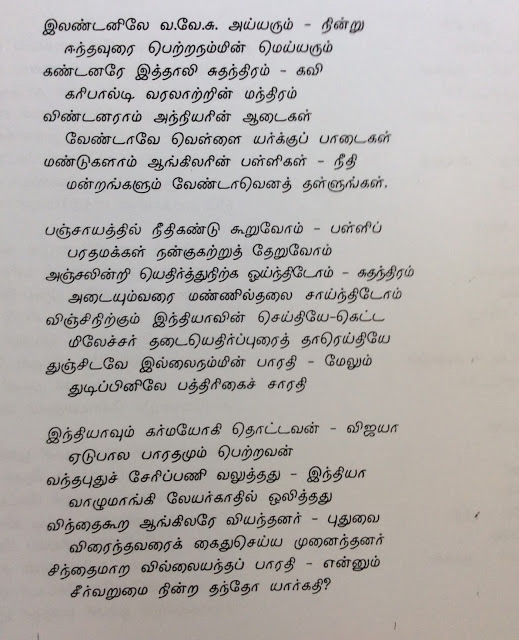 இலண்டனிலே வ.வே.சு. அய்யரும் – நின்று
ஈந்தவுரை பெற்றநம்மின் மெய்யரும்
கண்டனரே இத்தாலி சுதந்திரம் – கவி
கரிபால்டி வரலாற்றின் மந்திரம்
விண்டனராம் அந்நியரின் ஆடைகள்
வேண்டாவே வெள்ளை யர்க்குப் பாடைகள்
மண்டுகளாம் ஆங்கிலரின் பள்ளிகள் – நீதி
மன்றங்களும் வேண்டாவெனத் தள்ளுங்கள்.

பஞ்சாயத்தில் நீதிகண்டு கூறுவோம் – பள்ளிப்
பரதமக்கள் நன்குகற்றுத் தேறுவோம்
அஞ்சலின்றி யெதிர்த்துநிற்க ஓய்ந்திடோம் – சுதந்திரம்
அடையும்வரை மண்ணில்தலை சாய்ந்திடோம்
விஞ்சிநிற்கும் இந்தியாவின் செய்தியே–கெட்ட
மிலேச்சர் தடையெதிர்ப்புரைத் தாரெய்தியே
துஞ்சிடவே இல்லைநம்மின் பாரதி – மேலும்
துடிப்பினிலே பத்திரிகைச் சாரதி

இந்தியாவும் கர்மயோகி தொட்டவன் – விஜயா
ஏடுபால பாரதமும் பெற்றவன்
வந்தபுதுச் சேரிப்பணி வலுத்தது – இந்தியா
வாழுமாங்கி லேயர்காதில் ஒலித்தது
விந்தைகூற ஆங்கிலரே வியந்தனர் – புதுவை
விரைந்தவரைக் கைதுசெய்ய முனைந்தனர்
சிந்தைமாற வில்லையந்தப் பாரதி – என்னும்
சீர்வறுமை நின்ற தந்தோ யார்கதி?